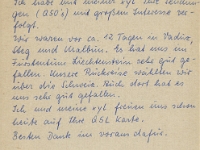 habe und meine xyl Ihre Sendun-
gen (QSO's) mit großem Interesse ver-
folgt.
Wir waren vor ca. 12 Tagen in Vaduz,
und Malbun. Es hat uns im
Fürstentum Liechtenstein sehr gut ge-
fallen. Unsere Rückreise wählten wir
über die Schweiz. Auch dort hat es
uns sehr gut gefallen.
Ich und meine xyl freuen uns schon
heute auf Ihre QSL Karte.
Besten Dank im voraus dafür.